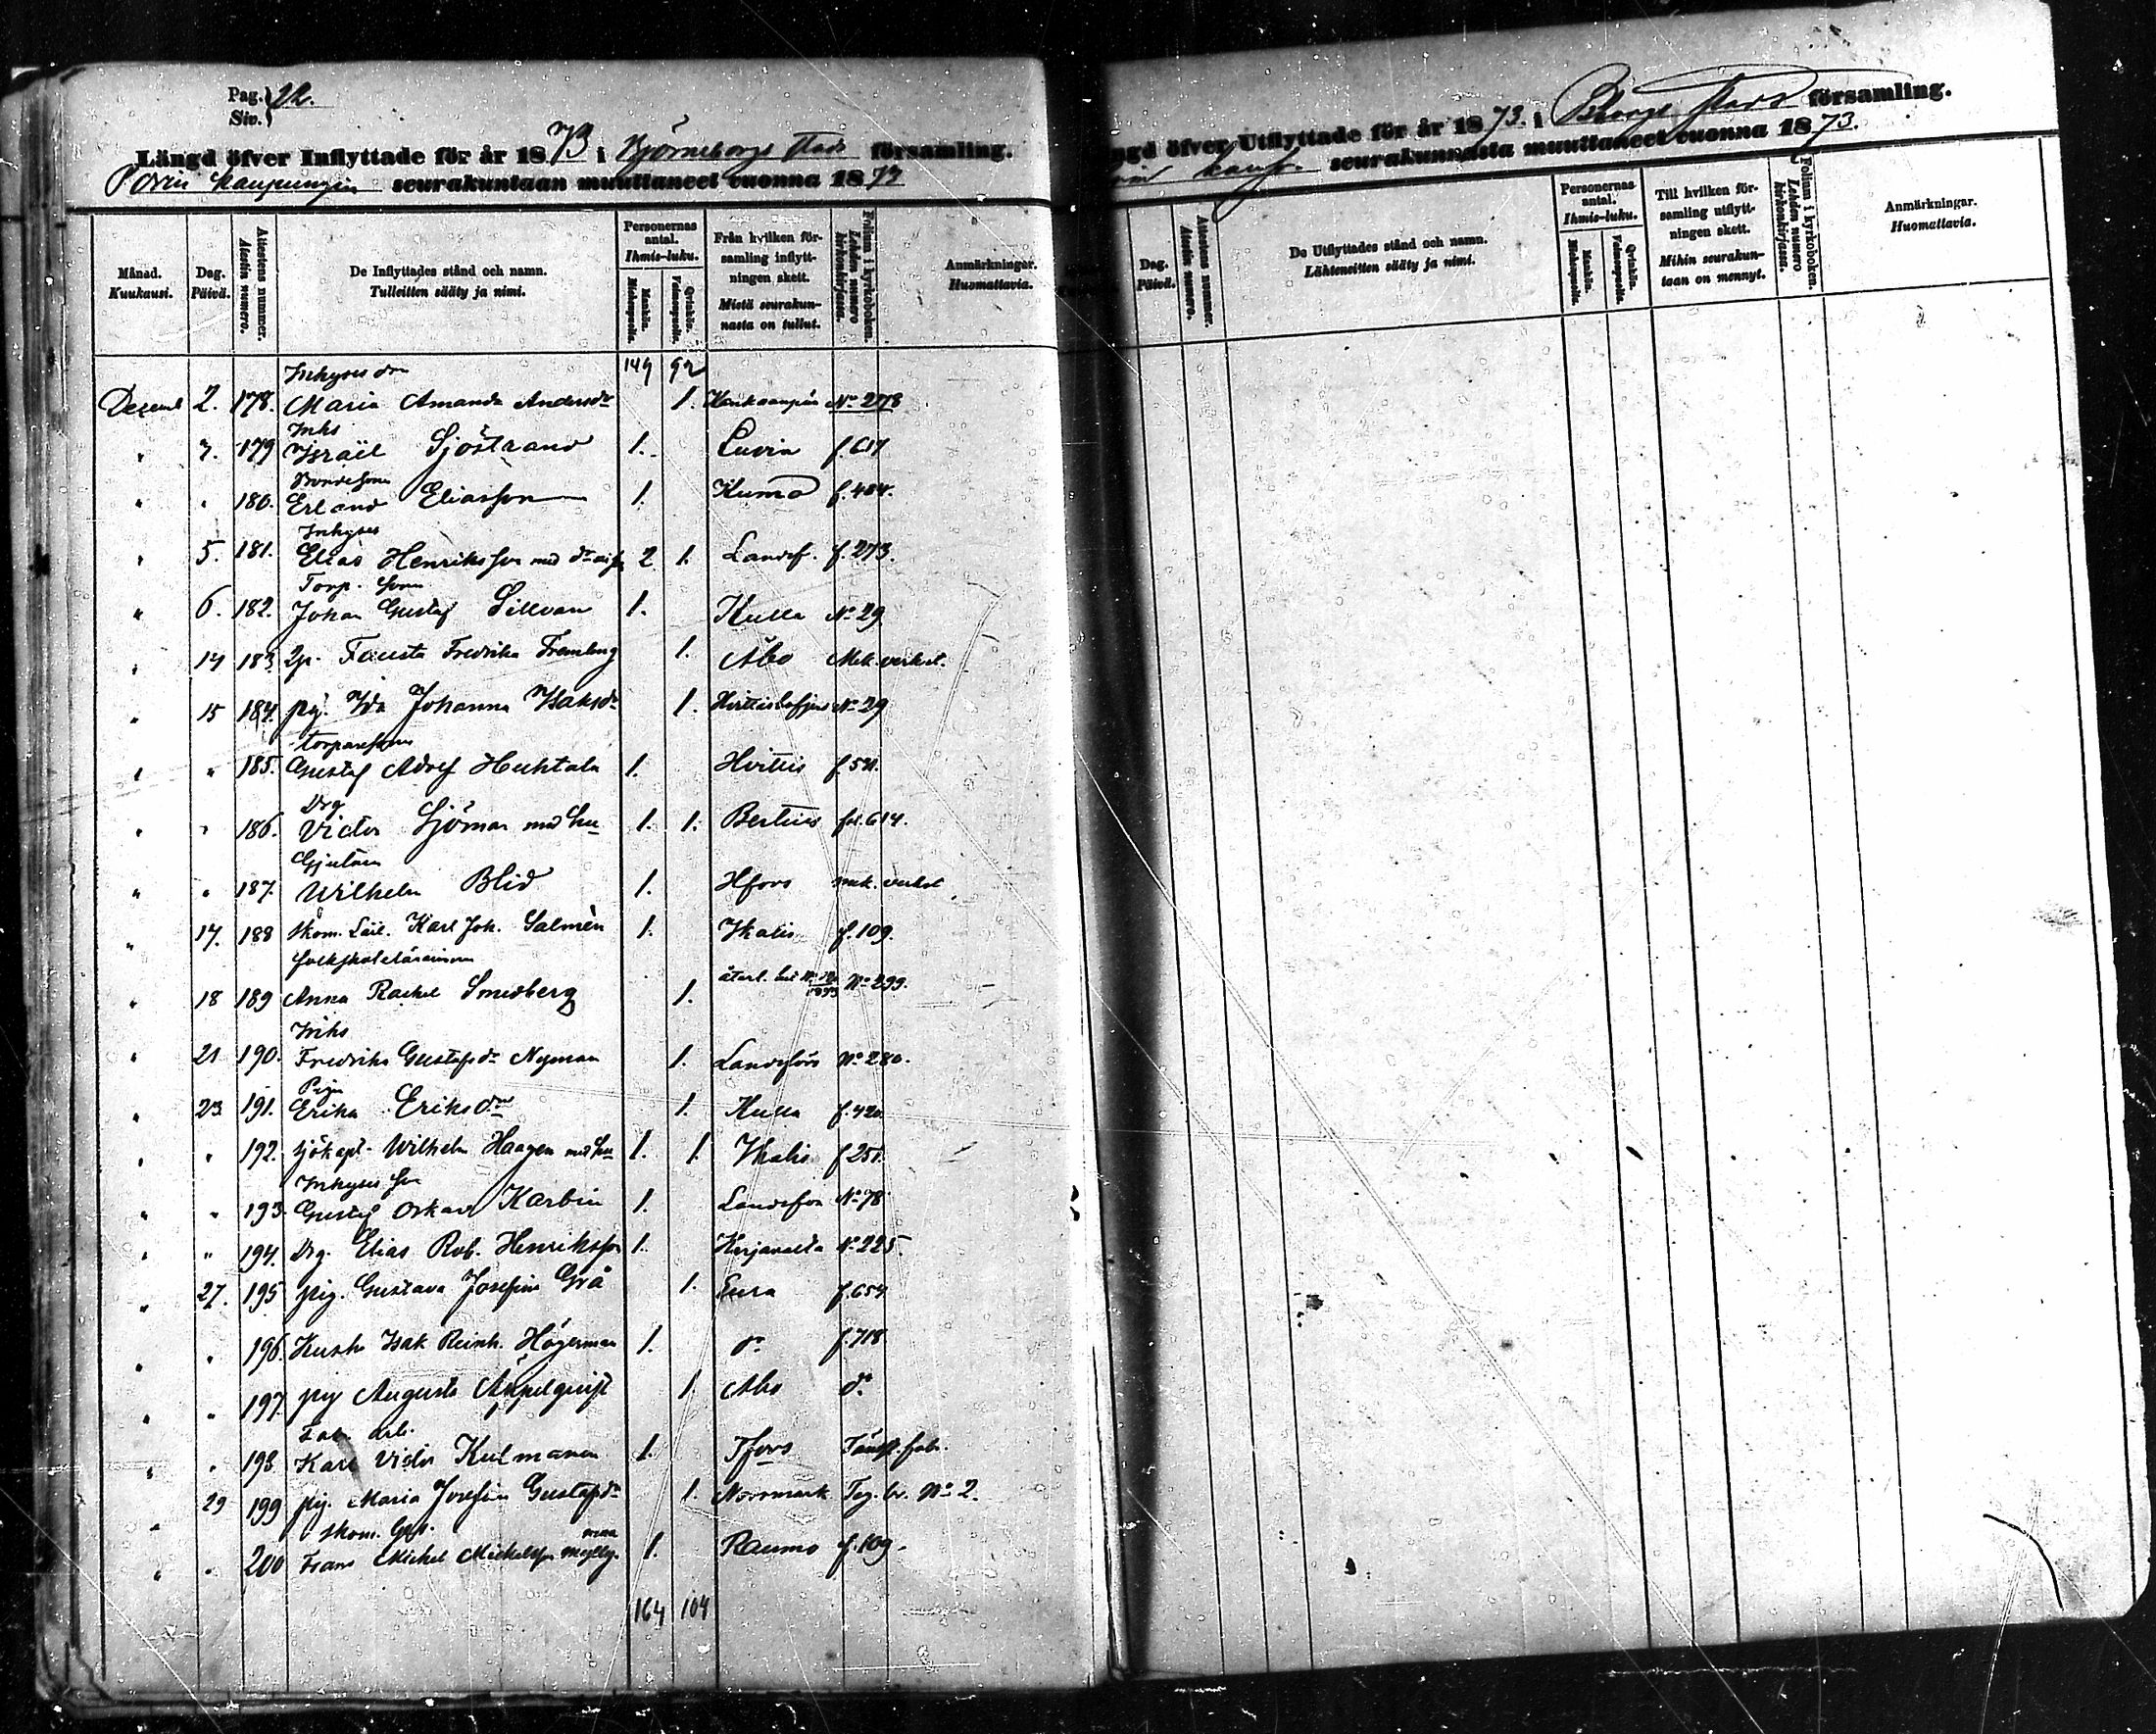 Pag. 22.
Siv.
Längd öfver Inflyttade för år 1873 i Björneborgs Stads församling.
Porin kaupungin seurakuntaan muuttaneet vuonna 1873
Månad. Kuukausi.
Dag. Päivä.
Attestens nummer. Atestin numero.
De Inflyttades stånd och namn. Tulleitten sääty ja nimi.
Personernas antal. Ihmis-luku.
Mankön. Miehenpuolia.
Qvinkön. Vaimonpuolia.
Från hvilken församling inflyttningen skett. Mistä seurakunnasta on tullut.
Folium i kyrkoboken. Lehden numero kirkonkirjassa.
Anmärkningar. Huomattavia.
149 92
Inhyses dr
Decemb 2. 178. Maria Amanda Andersdr 1. Kankaanpää No 278
Inhs
" 3. 179 Israël Sjöstrand 1. Luvia f. 617
Bondeson
" " 180. Erland Eliasson 1. Kumo f. 484.
Inhyses
" 5. 181. Elias Henriksson med 2 1. Landsf. f. 273.
Torp. Son
" 6. 182. Johan Gustaf Sillvan 1. Kulla No 29
" 14 183 Fausta Fredrika Fremling 1. Åbo Mek. verkst.
" 15 184. pig. Ida Johanna Isaksdr 1. No 29
torpareson
" " 185. Gustaf Adolf Huhtala 1. Hvittis f. 521.
Drg
" " 186. Victor Sjöman med hu 1. 1. Bertills fol. 614.
Gjutaren
" " 187. Wilhelm Blid 1. Hfors mek. verkst
" 17. 188 skom. Lärl. Karl Joh. Salmén 1. Ikalis f. 109.
folkskolelärarinnan
" 18 189 Anna Rachel Smedberg 1. återl. No 299.
Inhs
" 21 190. Fredrika Gustafsdr Nyman 1. Landsförs No 280.
Pigan
" 23 191. Erika Eriksdr 1. Kulla f. 420
" " 192. sjökapt. Wilhelm Haagen med hu 1. 1 Ikalis f. 251.
Inhyses son
" " 193. Gustaf Oskar Karbin 1. Landsför No 78
" " 194. Drg. Elias Rob. Henriksson 1. Harjavalta No 225.
" 27. 195 pig. Gustava Josefina Grå 1. Eura f. 654
" " 196. Kusk Isak Reinh. Högerman 1. do f. 718
" " 197 pig Augusta Appelquist 1. Åbo do
Fab. arb.
" " 198 Karl Victor Kulmanen 1. Tfors Tändst. fabr.
" 29 199 pig. Maria Josefina Gustafsdr 1. Norrmark Teg. br. No 2.
skom. Ges.
" " 200 Frans Mickel Mickelsson Myllymaa 1. Raumo f. 109.
164 104
ngd öfver Utflyttade för år 1873. i Bborgs Stads församling.
kaup. seurakunnasta muuttaneet vuonna 1873.
Dag. Päivä.
Attestens nummer. Atestin numero.
De Utflyttades stånd och namn. Lähteneitten sääty ja nimi.
Personernas antal. Ihmis-luku.
Mankön. Miehenpuolia.
Qvinkön. Vaimonpuolia.
Till hvilken församling utflyttningen skett. Mihin seurakuntaan on mennyt.
Folium i kyrkoboken. Lehden numero kirkonkirjassa.
Anmärkningar. Huomattavia.